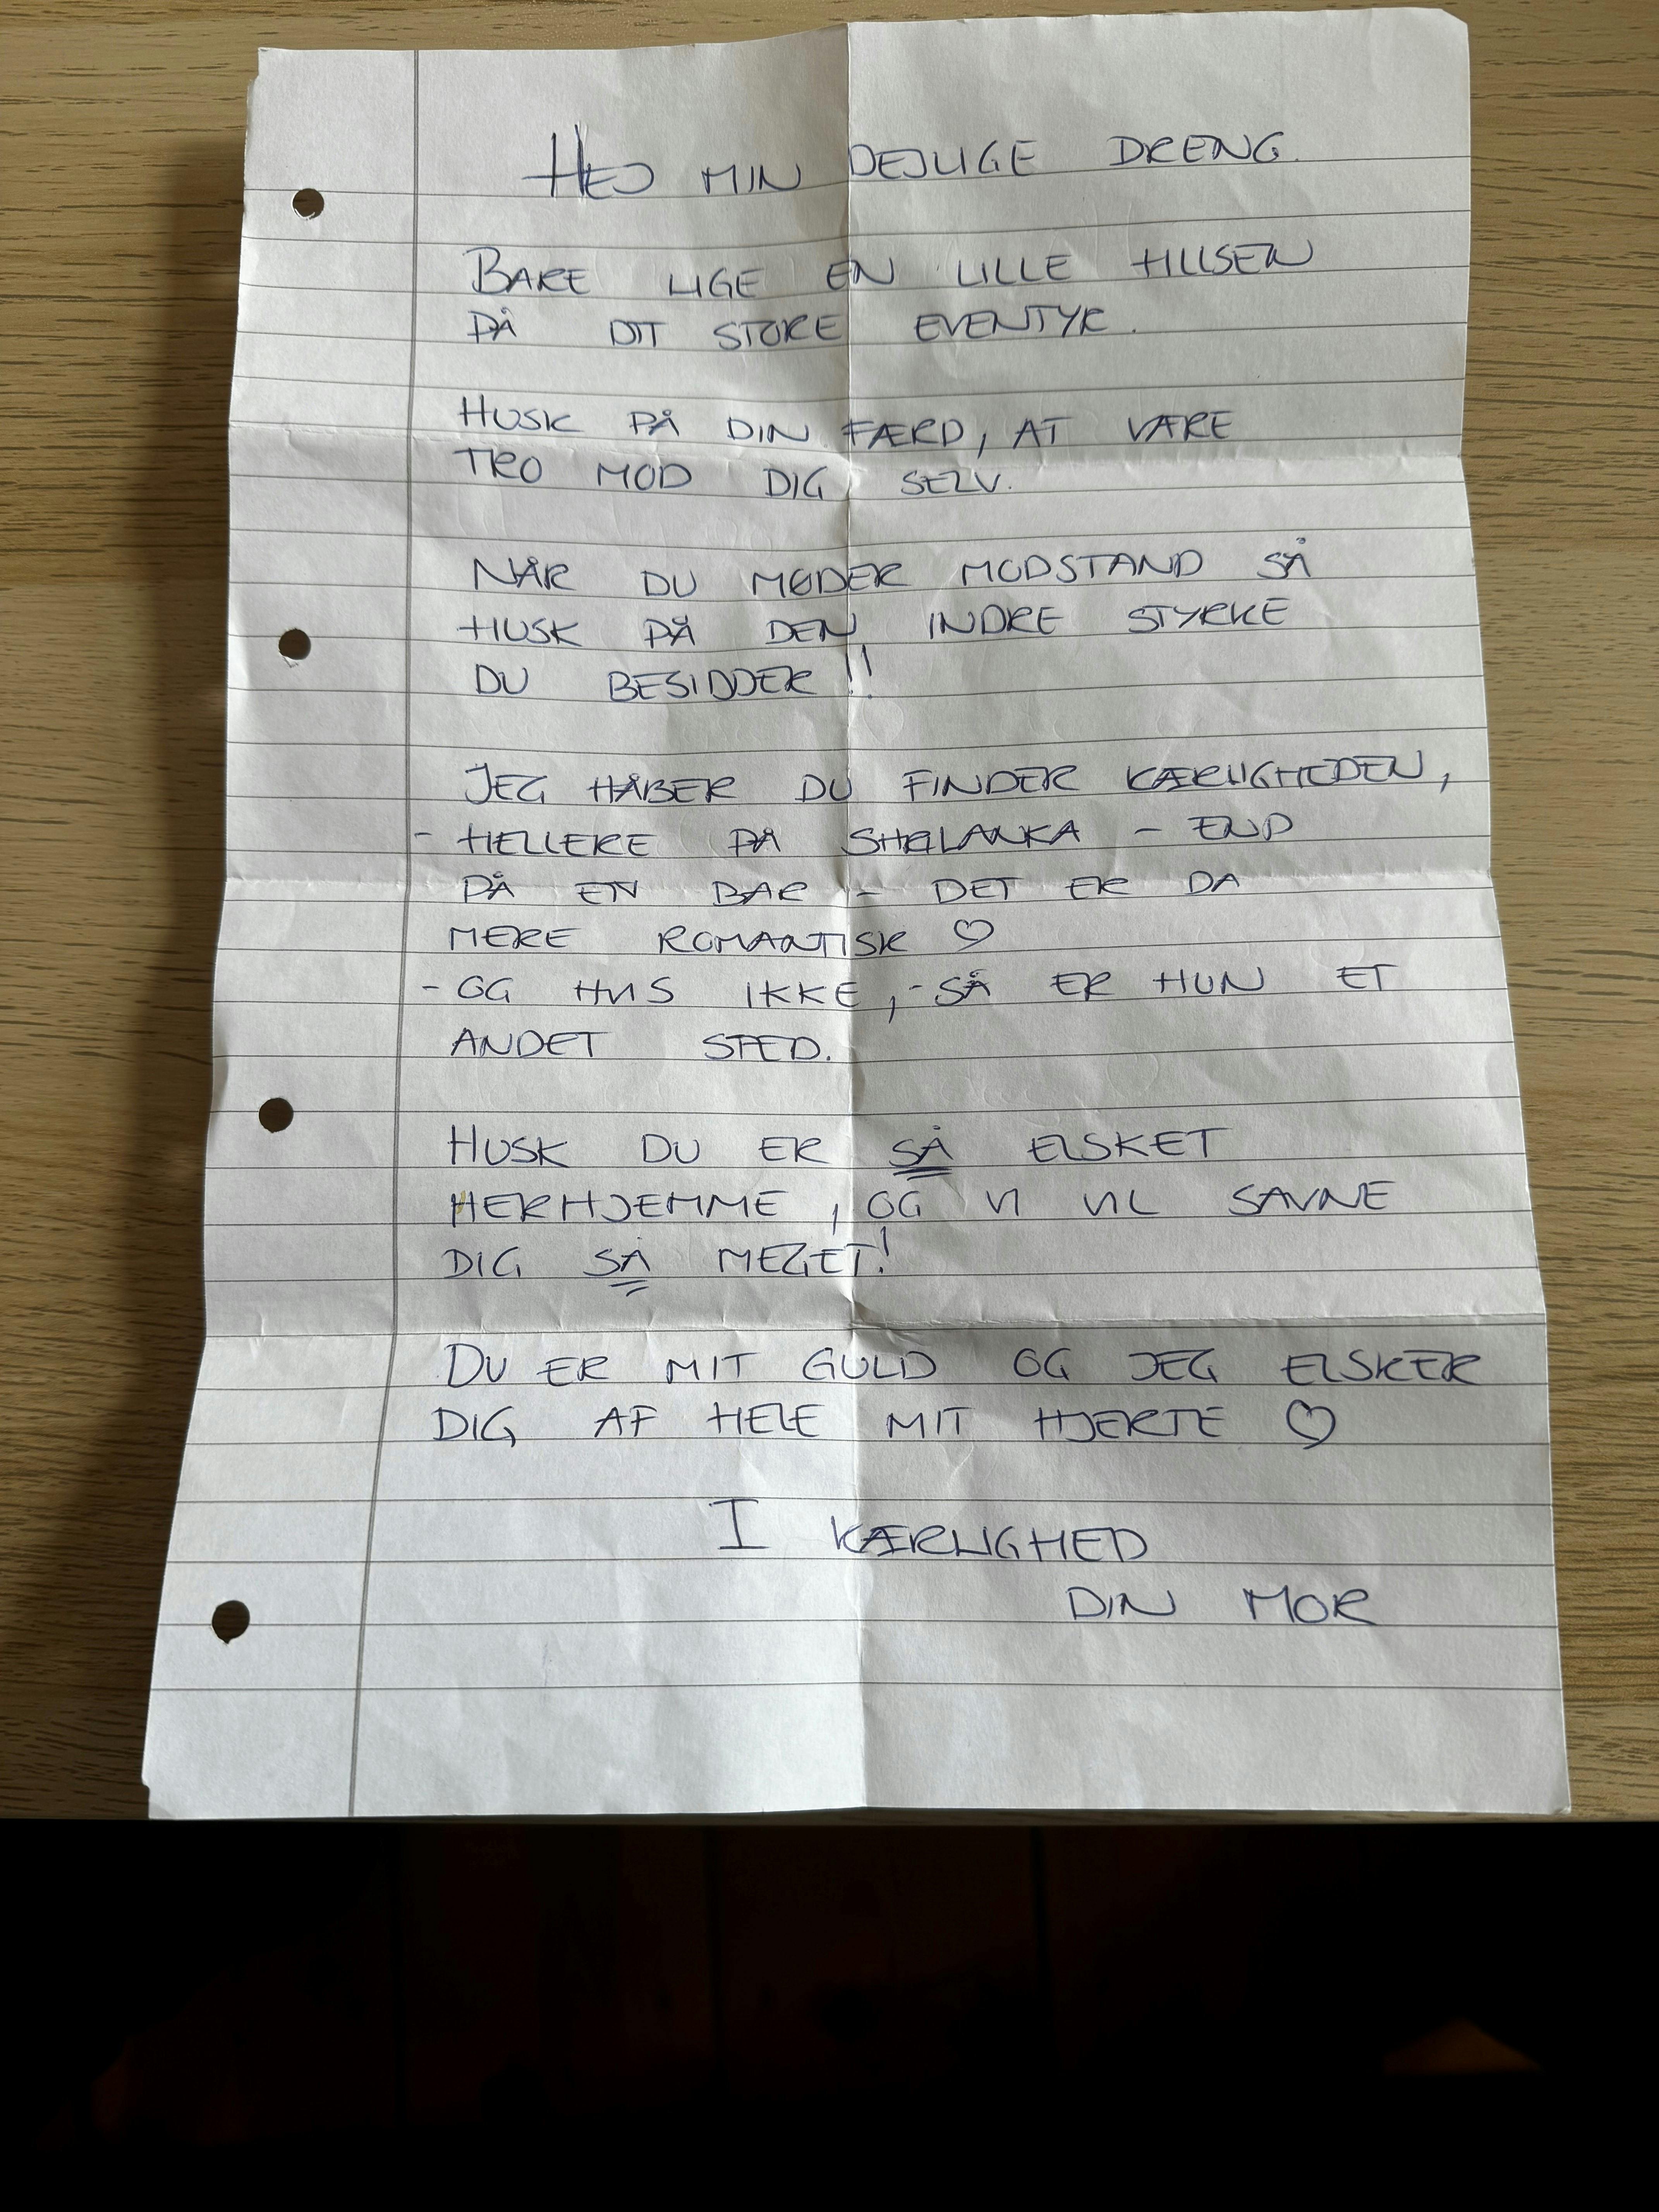 HEJ MIN DEJLIGE DRENG.
BARE LIGE EN LILLE HILSEN
PÅ DIT STORE EVENTYR.
HUSK PÅ DIN FÆRD, AT VÆRE
TRO MOD DIG SELV.
NÅR DU MØDER MODSTAND SÅ
HUSK PÅ DEN INDRE STYRKE
DU BESIDDER!!
JEG HÅBER DU FINDER KÆRLIGHEDEN,
- HELLERE PÅ SHRILANKA - END
PÅ EN BAR - DET ER DA
MERE ROMANTISK ♡
- OG HVIS IKKE, - SÅ ER HUN ET
ANDET STED.
HUSK DU ER SÅ ELSKET
HERHJEMME, OG VI VIL SAVNE
DIG SÅ MEGET!
DU ER MIT GULD OG JEG ELSKER
DIG AF HELE MIT HJERTE ♡
I KÆRLIGHED
DIN MOR